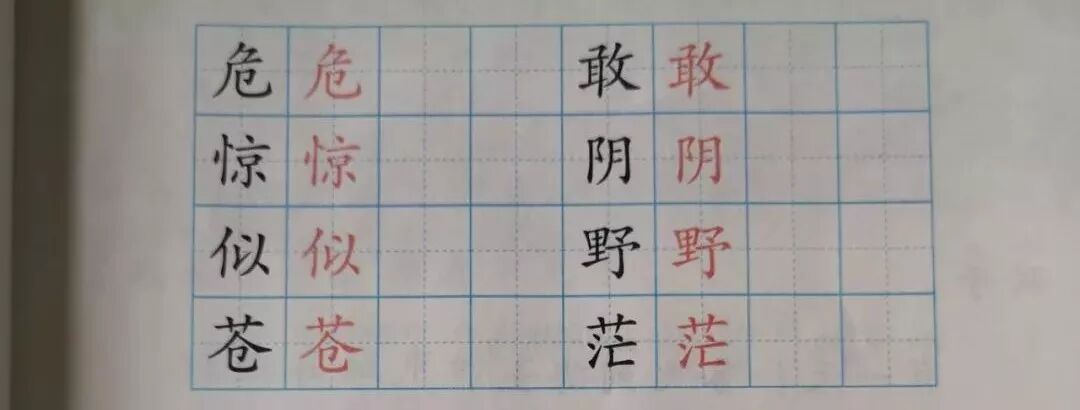 危 危 敢 敢
惊 惊 阴 阴
似 似 野 野
苍 苍 茫 茫